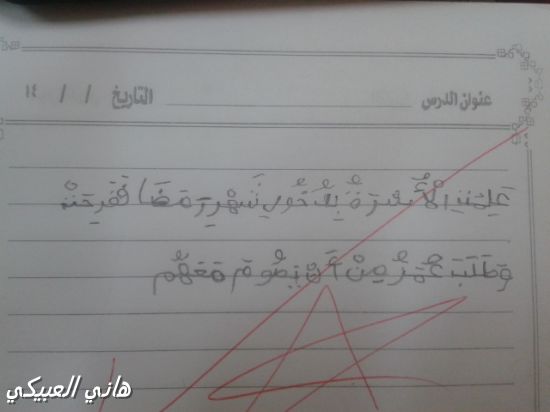 عنوان الدرس التاريخ / / ١٤
عَلِمَتِ الْأُسْرَةُ بِدُخُولِ شَهْرِ رَمَضَا فَفَرِحَتْ
وَطَلَبَ عُمَرُ مِنْ أَنْ يَصُومَ مَعَهُمْ
هاني العبيكي